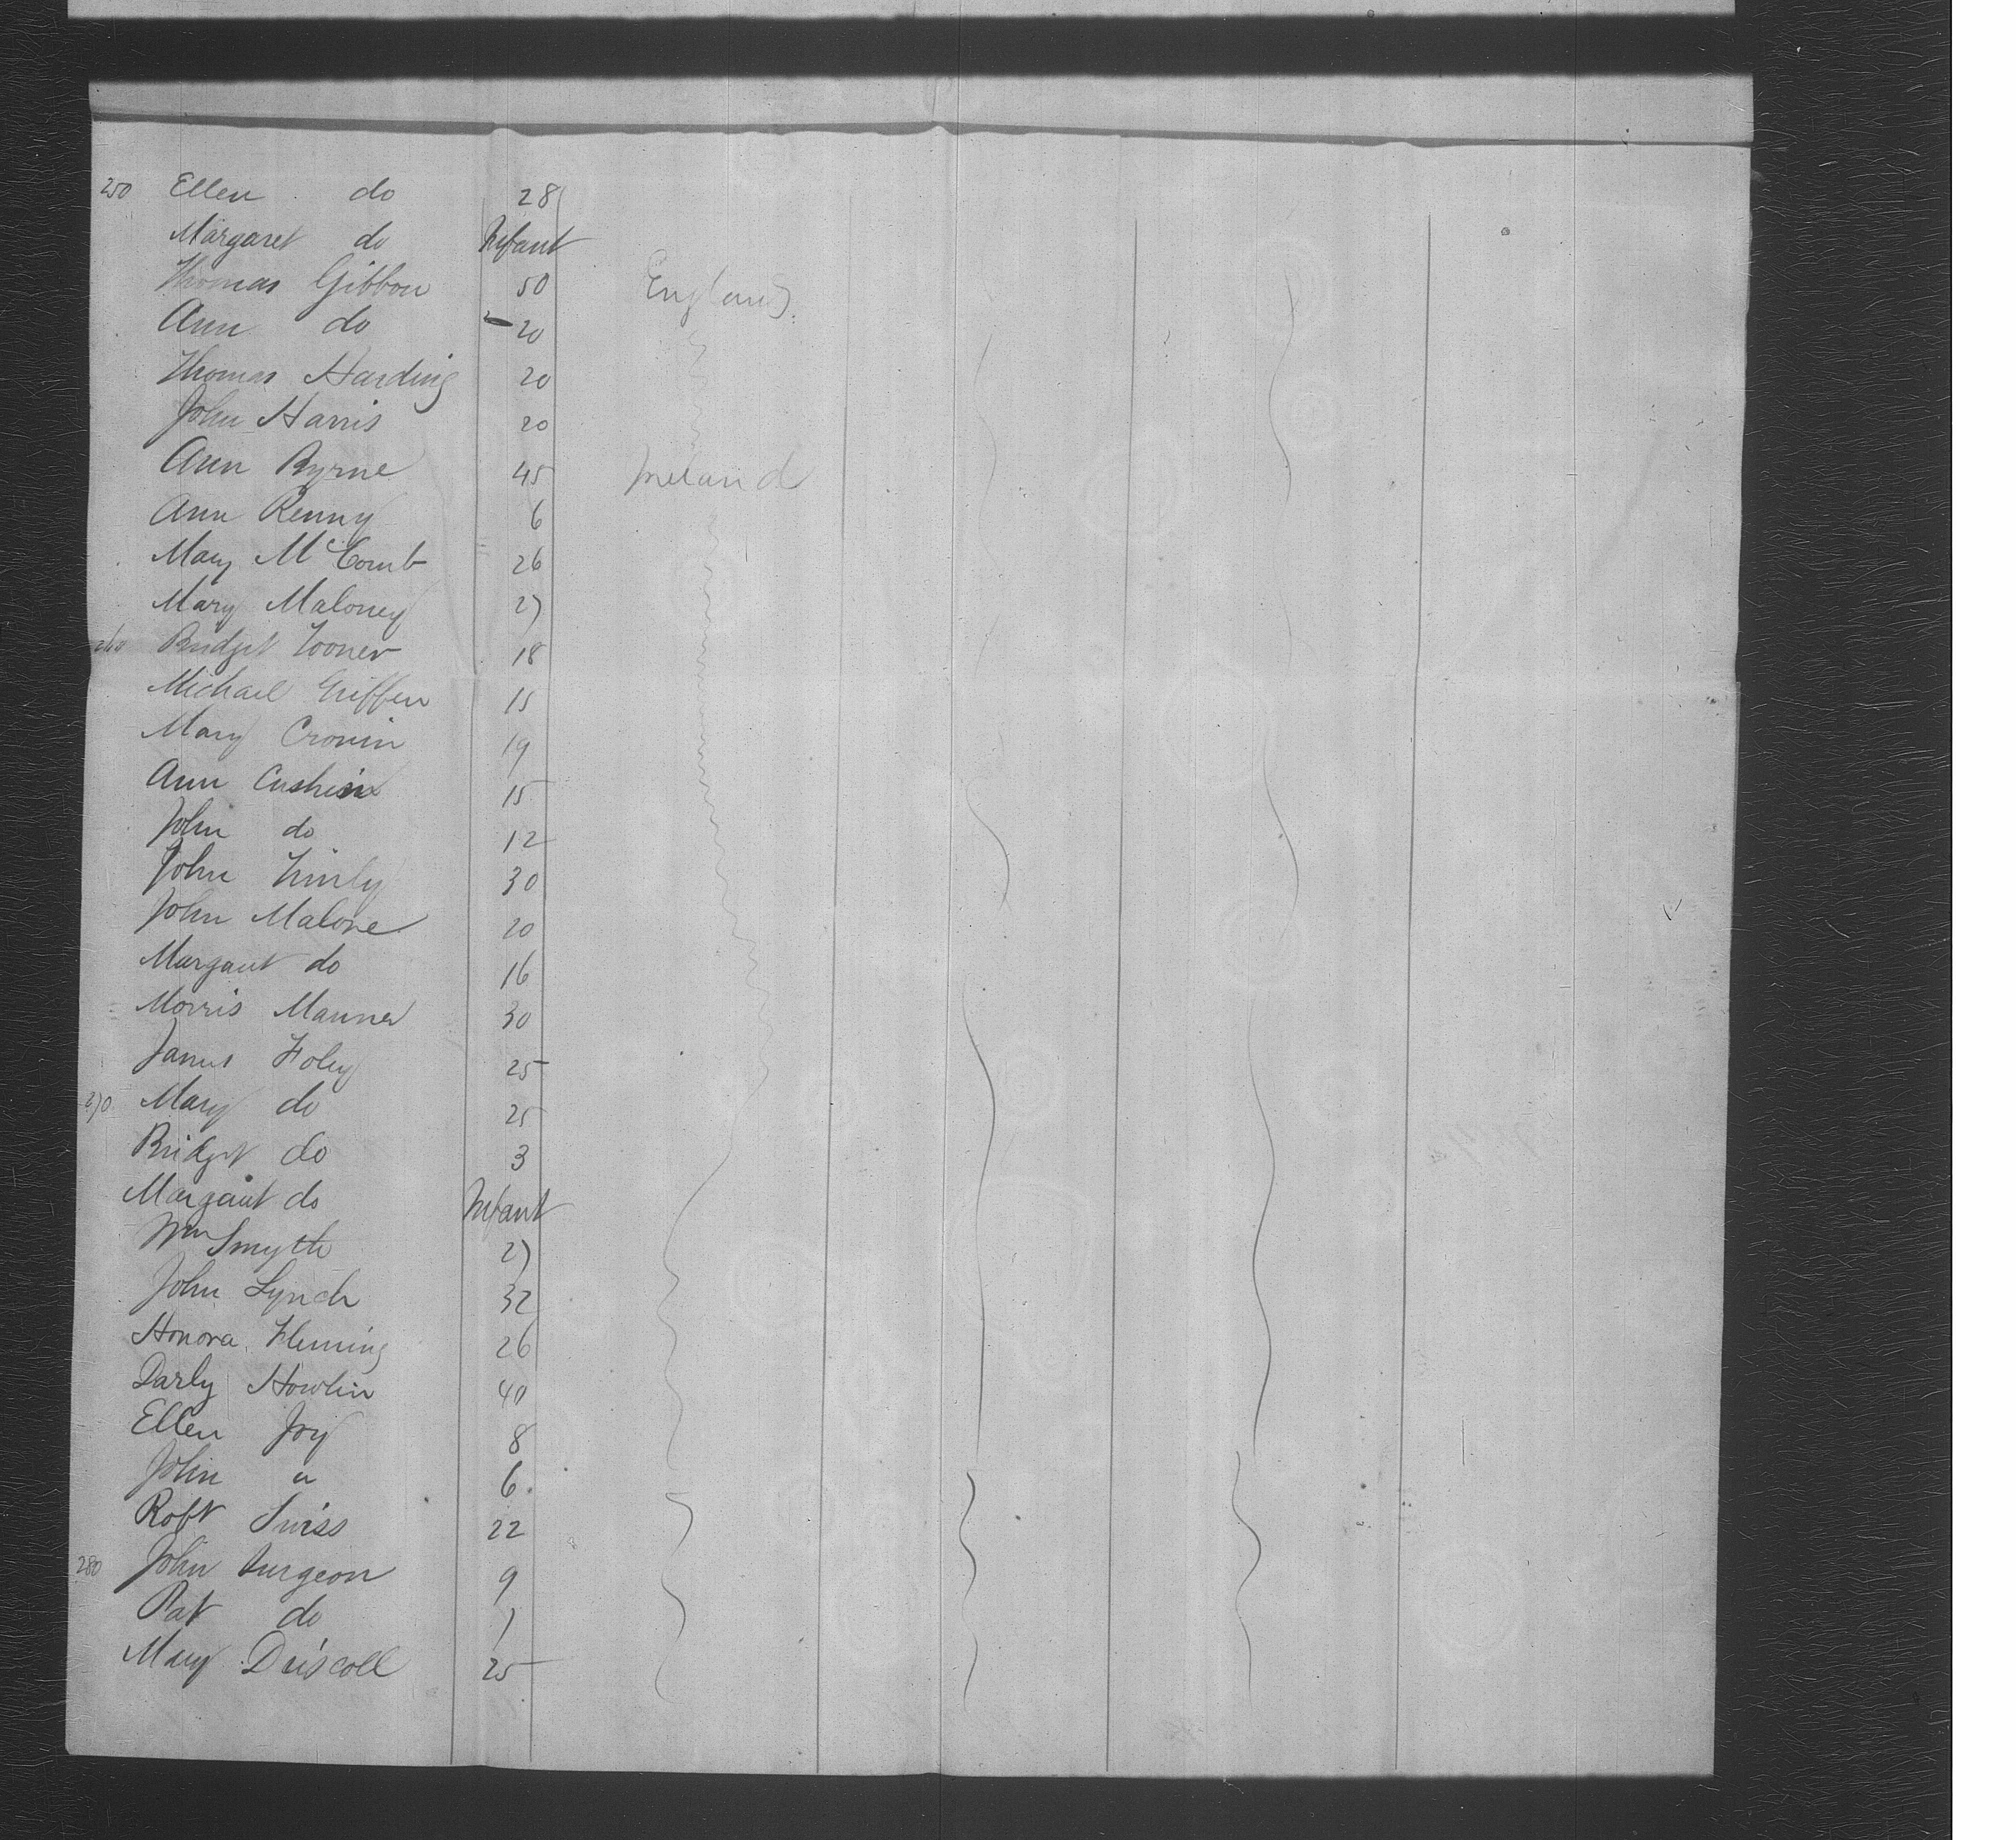 250 Ellen do 28
Margaret do Infant
Thomas Gibbon 50 England
Ann do 20
Thomas Harding 20
John Harris 20
Ann Byrne 45 Ireland
Ann Kenny 6
Mary McComb 26
Mary Maloney 27
260 Bridget 18
Michael Griffen 15
Mary Cronin 19
Ann Cushin 15
John do 12
John 30
John Malone 20
Margaret do 16
Morris Manner 30
James Foley 25
270 Mary do 25
Bridget do 3
Margaret do Infant
Wm Smyth 27
John Lynch 32
Honora Fleming 26
Darly Howlin 40
Ellen Joy 8
John " 6
Robt Swiss 22
280 John Surgeon 9
Pat do 7
Mary Driscoll 25